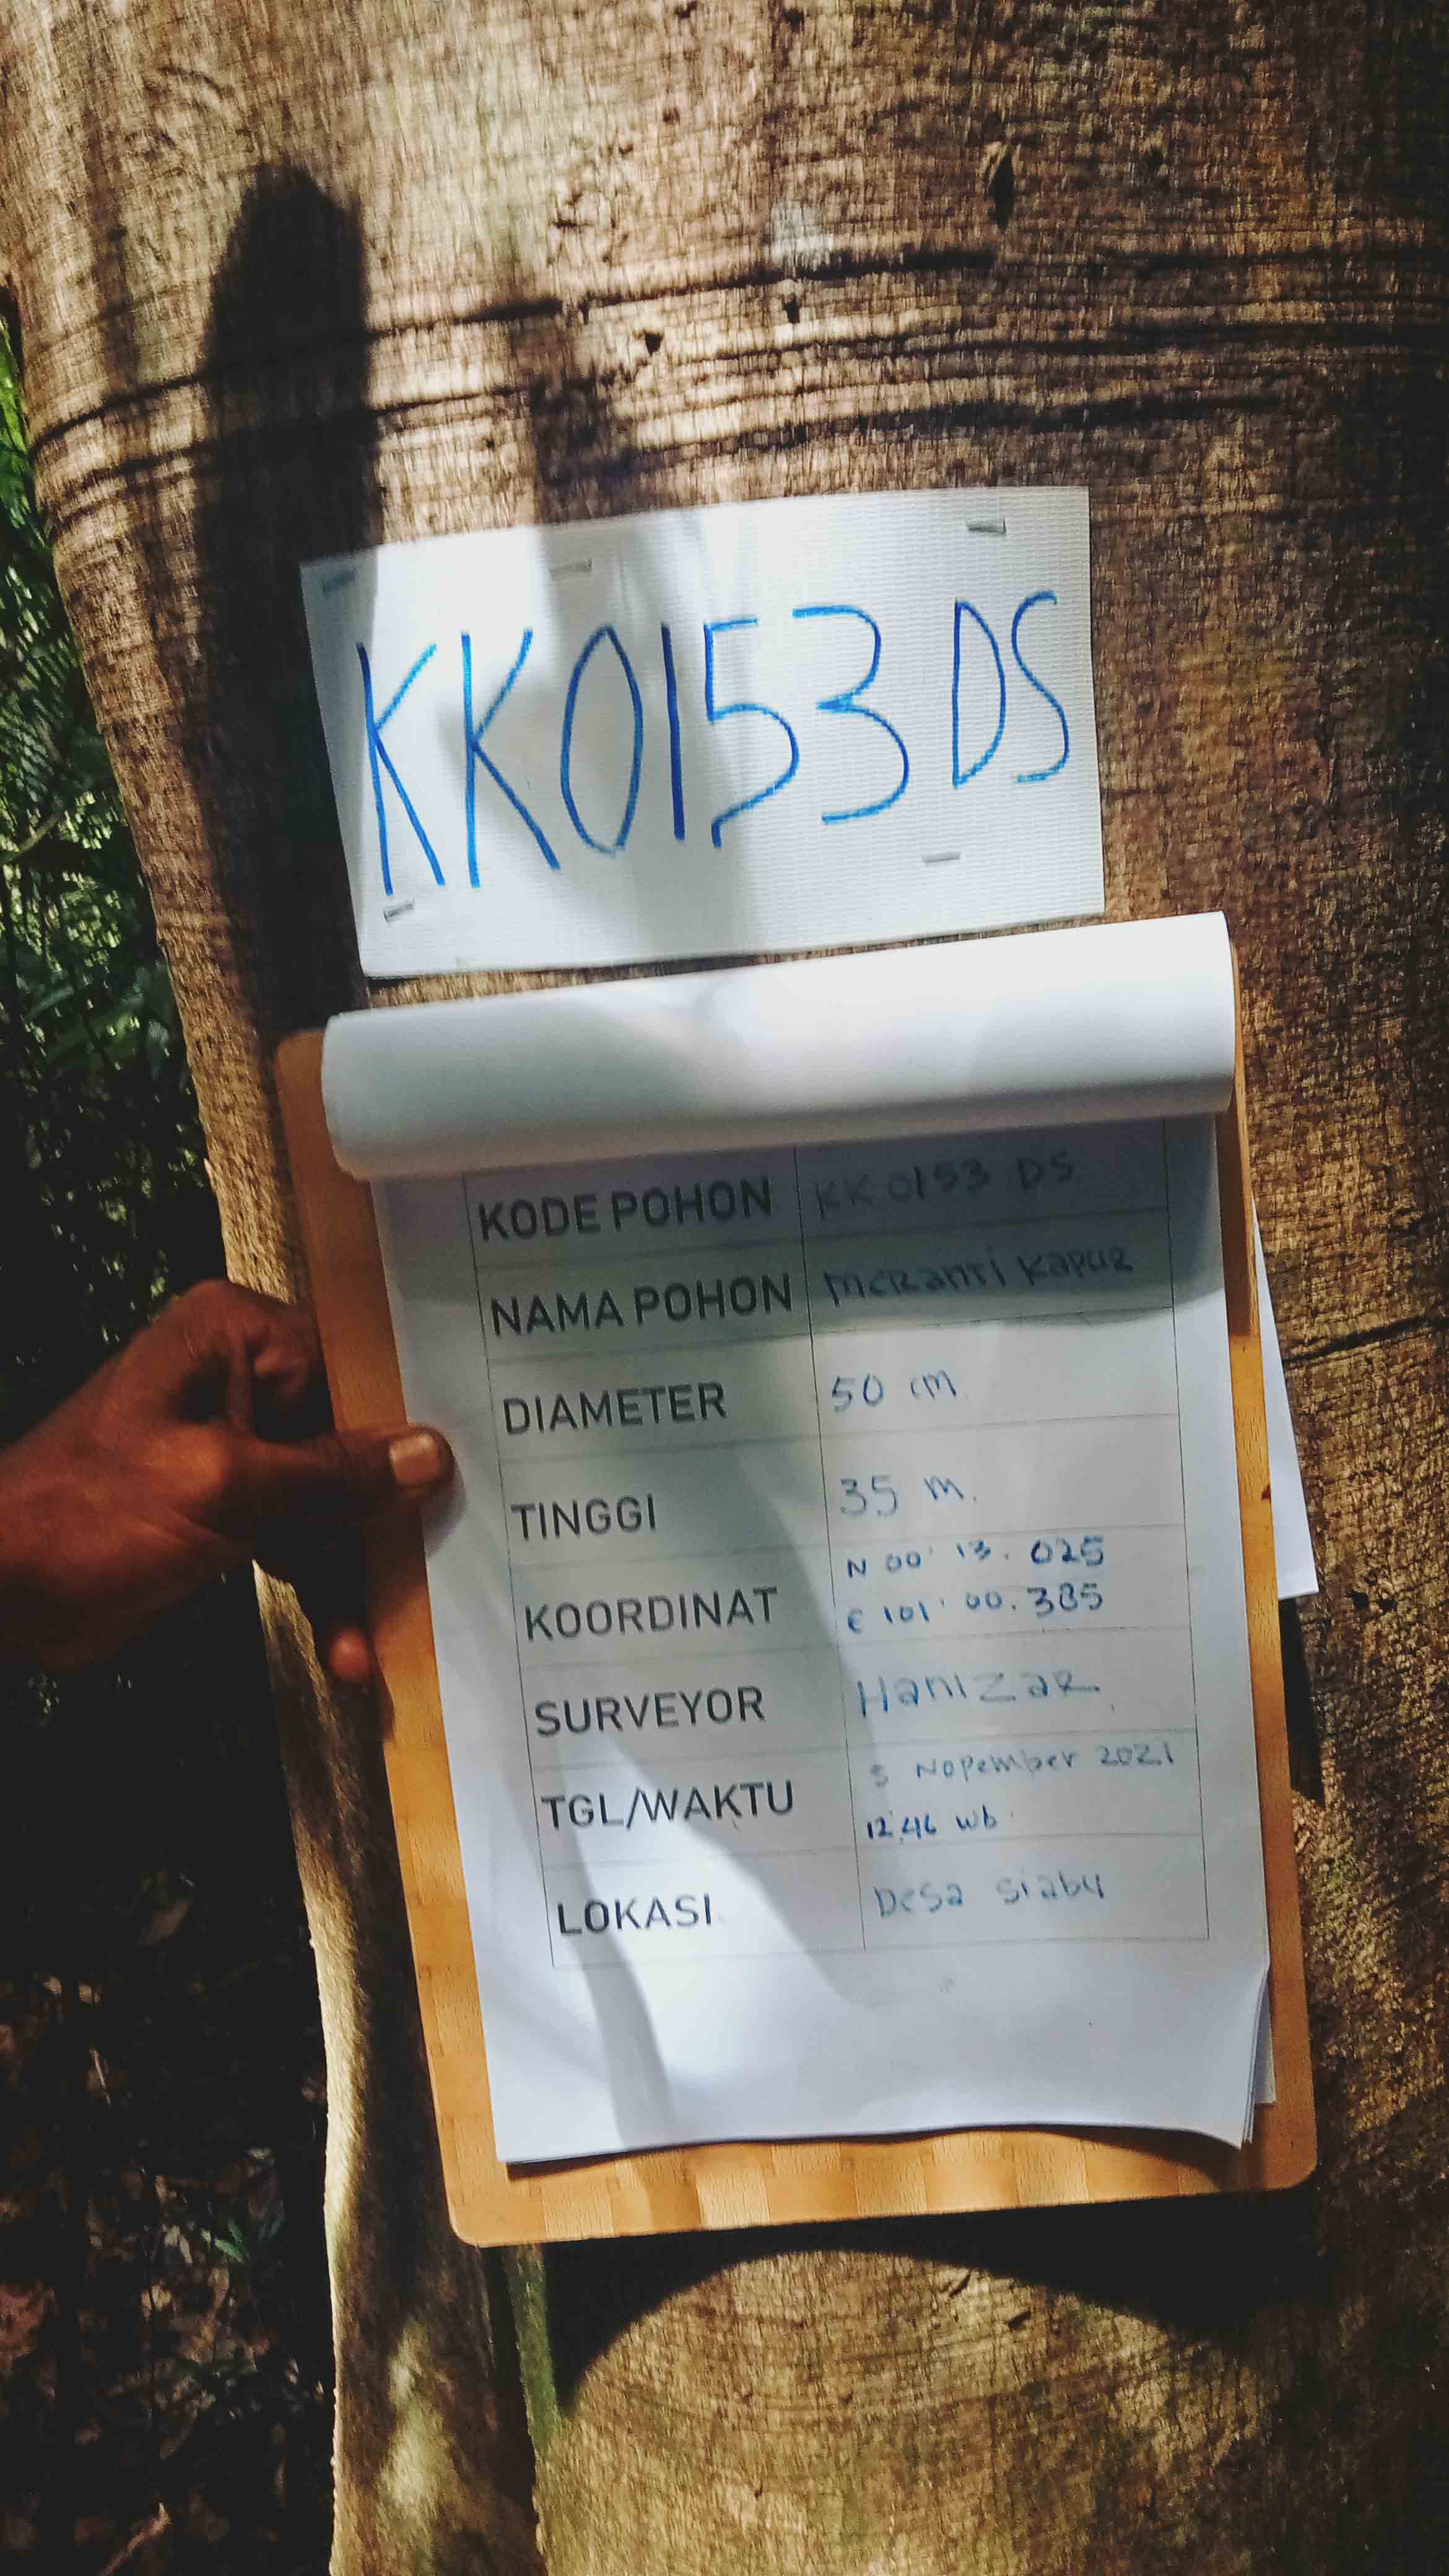 KK0153 DS
KODE POHON KK 0153 DS
NAMA POHON meRanti KapuR
DIAMETER 50 cm
TINGGI 35 m.
KOORDINAT N 00' 13. 025
E 101' 00. 385
SURVEYOR HanizaR
TGL/WAKTU 5 Nopember 2021
12.46 wb
LOKASI Desa siabu